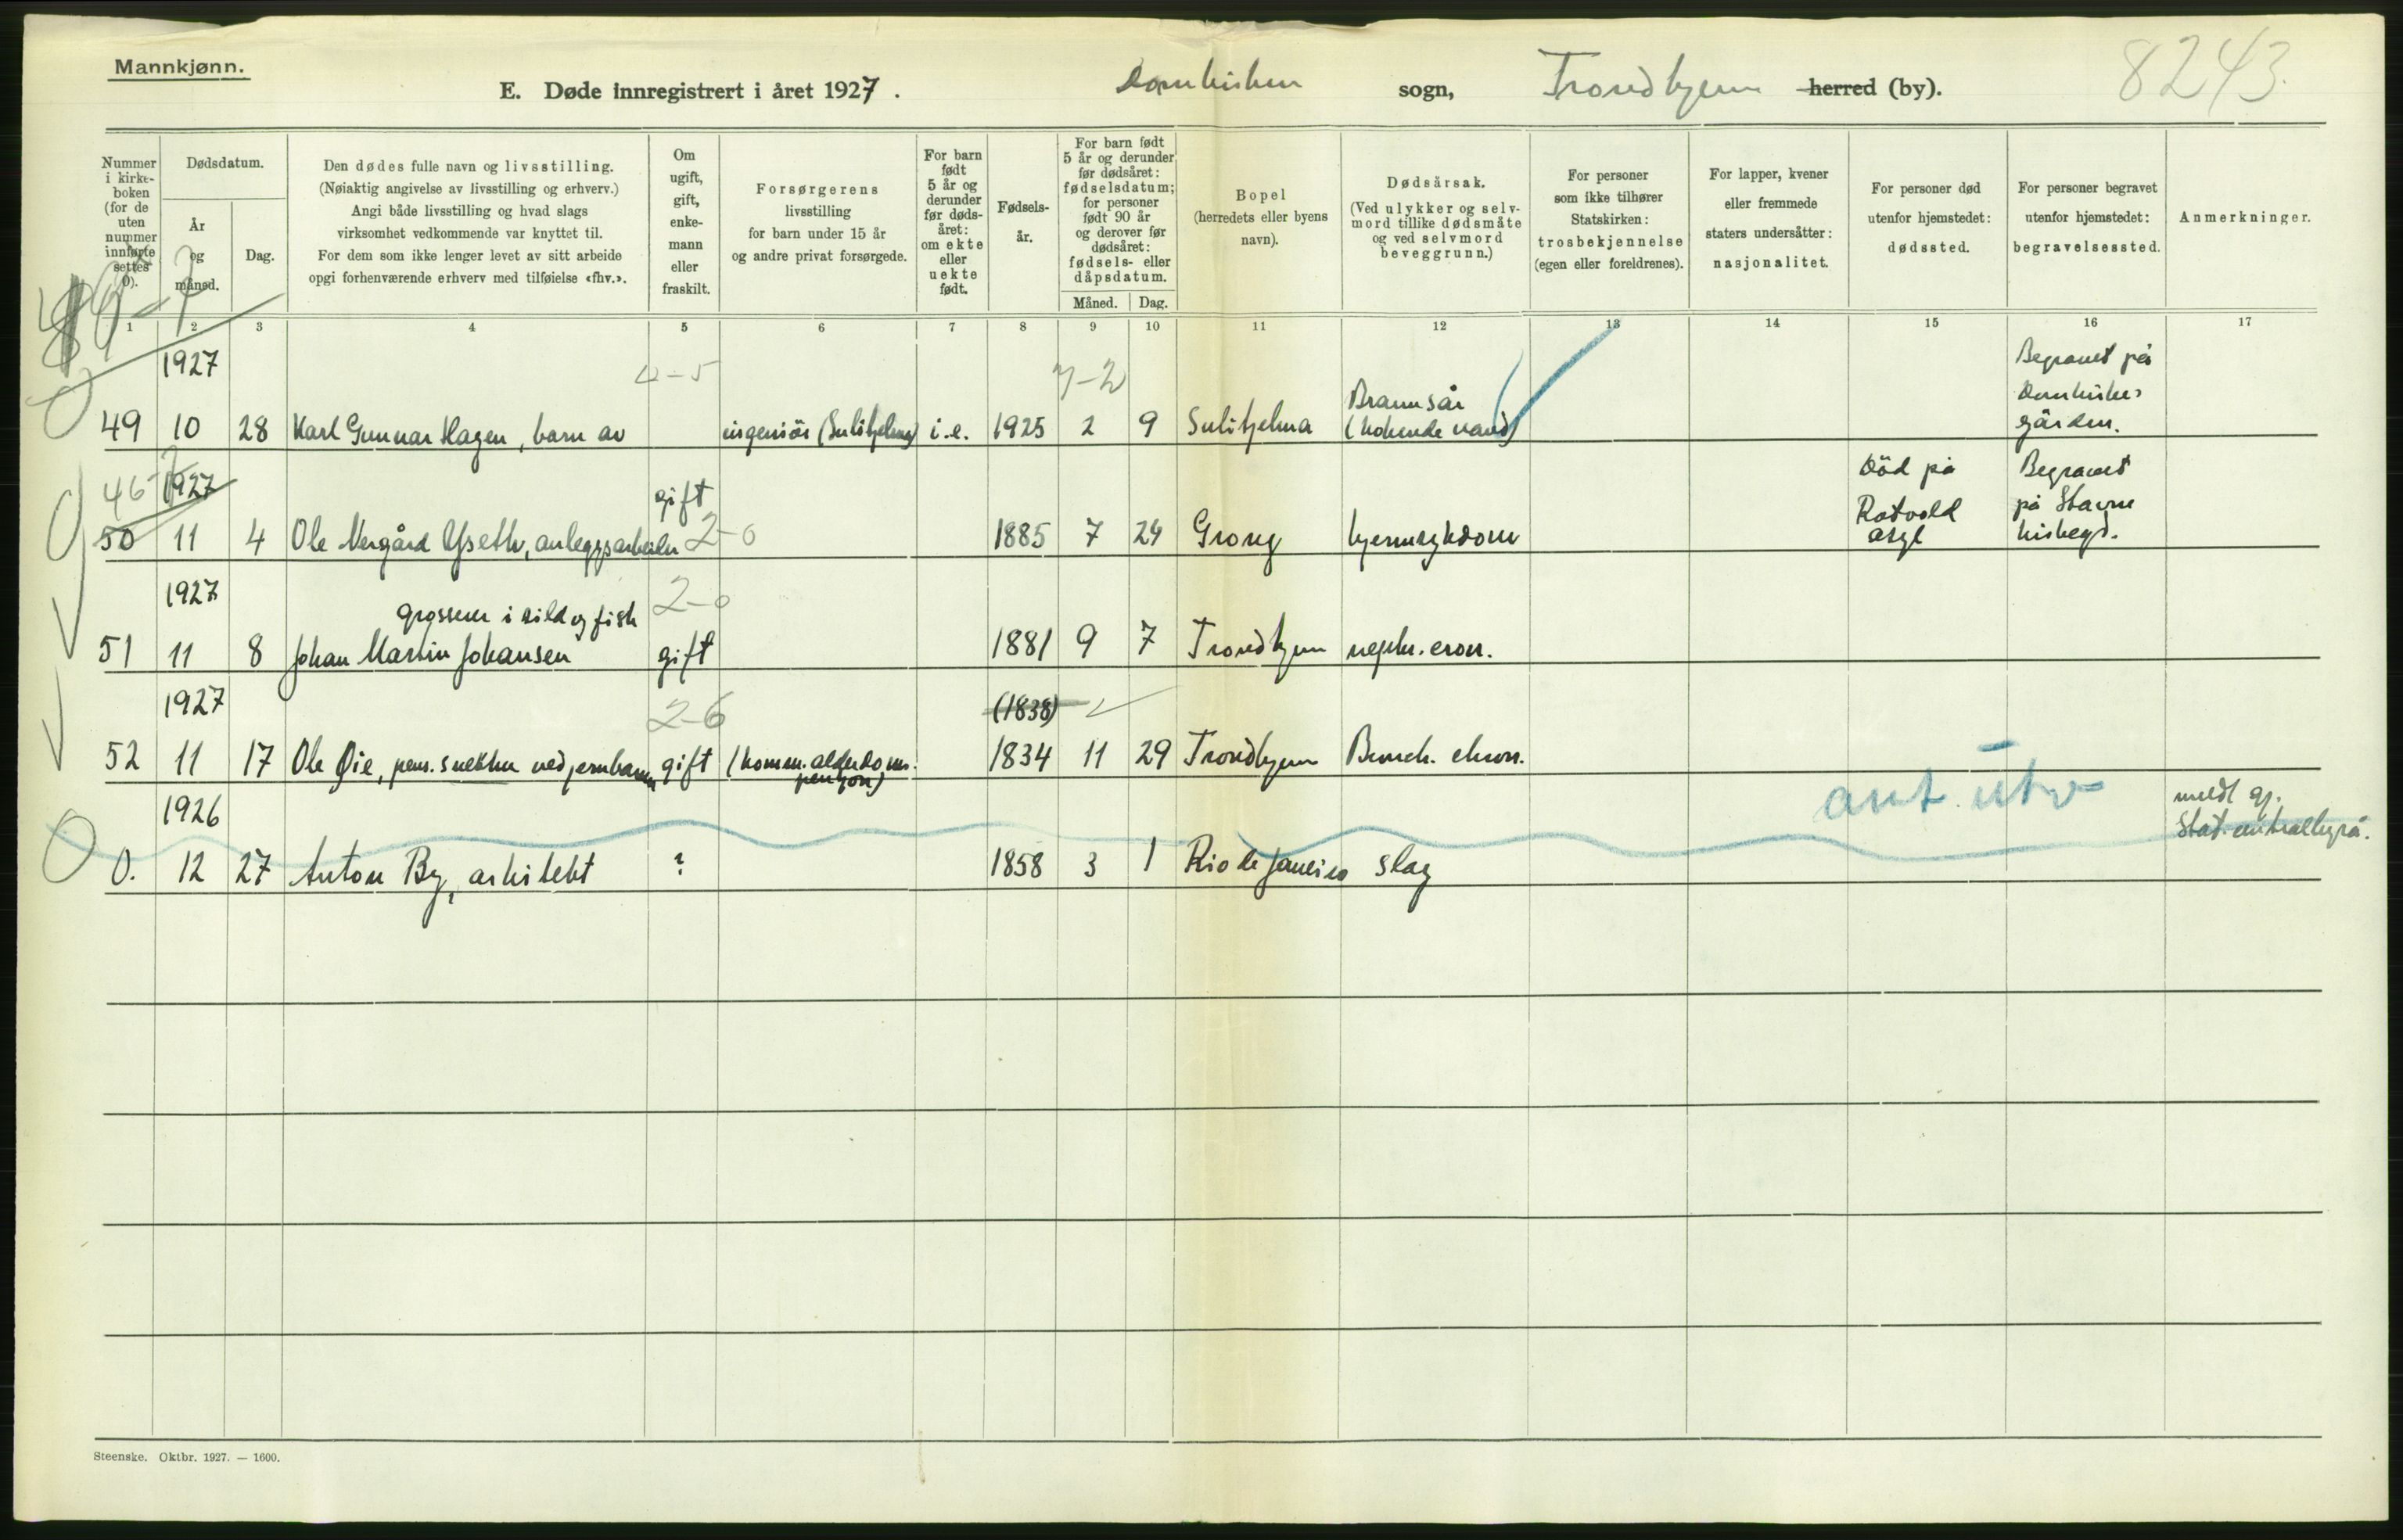 Mannkjønn.
E. Døde innregistrert i året 1927. Domkirken sogn, Trondhjem herred (by). 8243.
Nummer i kirkeboken (for de uten nummer innførte settes 0).
Dødsdatum.
År og måned.
Dag.
Den dødes fulle navn og livsstilling.
(Nøiaktig angivelse av livsstilling og erhverv.)
Angi både livsstilling og hvad slags
virksomhet vedkommende var knyttet til.
For dem som ikke lenger levet av sitt arbeide
opgi forhenværende erhverv med tilføielse «fhv.».
Om ugift, gift, enkemann eller fraskilt.
Forsørgerens
livsstilling
for barn under 15 år
og andre privat forsørgede.
For barn født 5 år og derunder før dødsåret: om ekte eller uekte født.
Fødselsår.
For barn født 5 år og derunder før dødsåret: fødselsdatum; for personer født 90 år og derover før dødsåret: fødsels- eller dåpsdatum.
Måned. Dag.
Bopel
(herredets eller byens
navn).
Dødsårsak.
(Ved ulykker og selvmord tillike dødsmåte og ved selvmord beveggrunn.)
For personer
som ikke tilhører
Statskirken:
trosbekjennelse
(egen eller foreldrenes).
For lapper, kvener
eller fremmede
staters undersåtter:
nasjonalitet.
For personer død
utenfor hjemstedet:
dødssted.
For personer begravet
utenfor hjemstedet:
begravelsessted.
Anmerkninger.
1 2 3 4 5 6 7 8 9 10 11 12 13 14 15 16 17
1927 4-5 7-2 Begravet på
Brannsår Domkirke-
49 10 28 Karl Gunnar Hagen, barn av ingeniör (Sulitjelma) i.e. 1925 2 9 Sulitjelma (kokende vand) gården.
46 1927 gift Död på Begravet
Rotvold på Stavne
50 11 4 Ole Vergård Yseth, anleggsarbeider 2-0 1885 7 24 Grong hjernesykdom asyl kirkegd.
1927 2-0
grosserer i sild og fisk
51 11 8 Johan Martin Johansen gift 1881 9 7 Trondhjem nephr. cron.
1927 2-6 (1838)
52 11 17 Ole Øie, pens. snekker ved jernbanen gift (komm. alderdoms- 1834 11 29 Trondhjem Bronch. chron.
pensjon)
1926 ant. utv meldt gj.
Stat. centralbyrå.
0. 12 27 Anton By, arkitekt ? 1858 3 1 Rio de Janeiro slag
Steenske. Oktbr. 1927. — 1600.